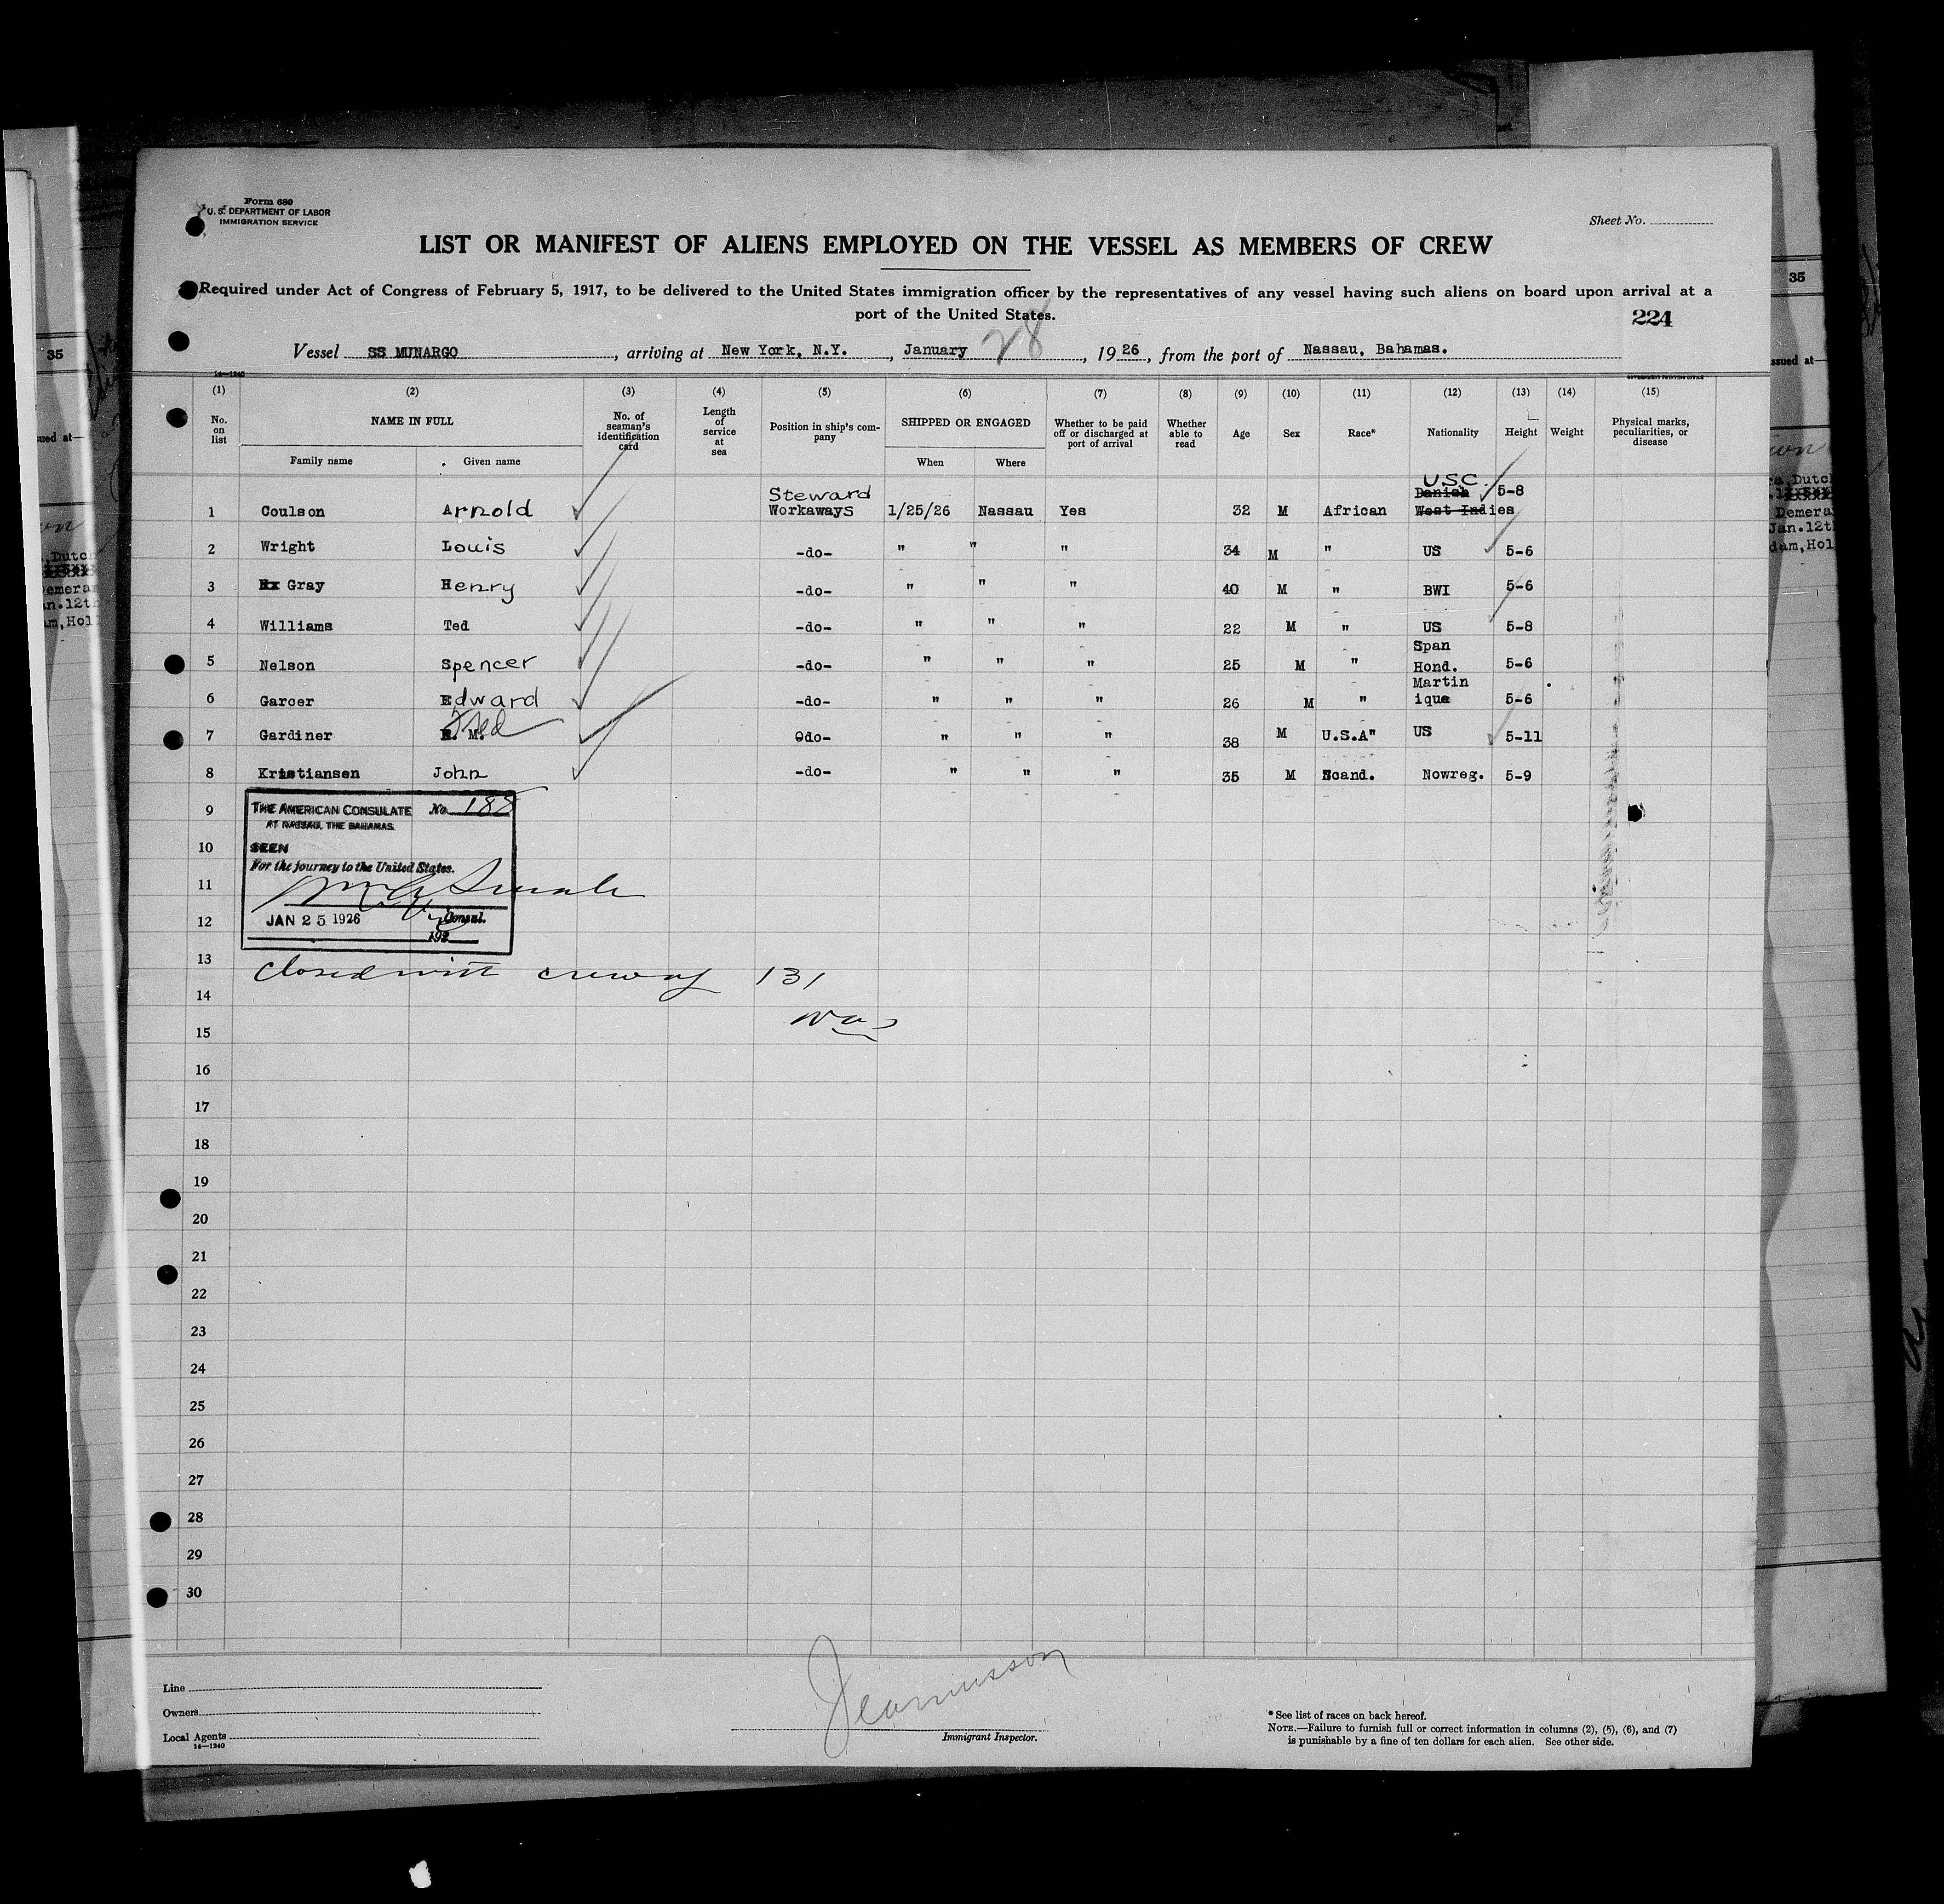 Form 680
U. S. DEPARTMENT OF LABOR
IMMIGRATION SERVICE
Sheet No.
LIST OR MANIFEST OF ALIENS EMPLOYED ON THE VESSEL AS MEMBERS OF CREW
Required under Act of Congress of February 5, 1917, to be delivered to the United States immigration officer by the representatives of any vessel having such aliens on board upon arrival at a
port of the United States.
224
Vessel SS MUNARGO, arriving at New York, N.Y., January 28, 1926, from the port of Nassau, Bahamas.
14—1240
GOVERNMENT PRINTING OFFICE
(1) (2) (3) (4) (5) (6) (7) (8) (9) (10) (11) (12) (13) (14) (15)
No. on list
NAME IN FULL
Family name Given name
No. of seaman's identification card
Length of service at sea
Position in ship's company
SHIPPED OR ENGAGED
When Where
Whether to be paid off or discharged at port of arrival
Whether able to read
Age Sex Race* Nationality Height Weight
Physical marks, peculiarities, or disease
Steward U.S.C. Danish 5-8
1 Coulson Arnold Workaways 1/25/26 Nassau Yes 32 M African West Indies
2 Wright Louis -do- " " " 34 M " US 5-6
3 Gray Henry -do- " " " 40 M " BWI 5-6
4 Williams Ted -do- " " " 22 M " US 5-8
Span
5 Nelson Spencer -do- " " " 25 M " Hond. 5-6
Martin
6 Garcer Edward -do- " " " 26 M " ique 5-6
Fred
7 Gardiner M. 0do- " " " 38 M U.S.A" US 5-11
8 Kristiansen John -do- " " " 35 M Scand. Nowreg. 5-9
9
THE AMERICAN CONSULATE No. 188
AT NASSAU, THE BAHAMAS.
10
SEEN
For the journey to the United States.
11
12
JAN 25 1926
Consul.
192
13
closed with crew of 131
14
15
16
17
18
19
20
21
22
23
24
25
26
27
28
29
30
Line
Owners
Local Agents
14—1240
Immigrant Inspector.
* See list of races on back hereof.
NOTE.—Failure to furnish full or correct information in columns (2), (5), (6), and (7)
is punishable by a fine of ten dollars for each alien. See other side.
35
ued at—
35
ssued at—